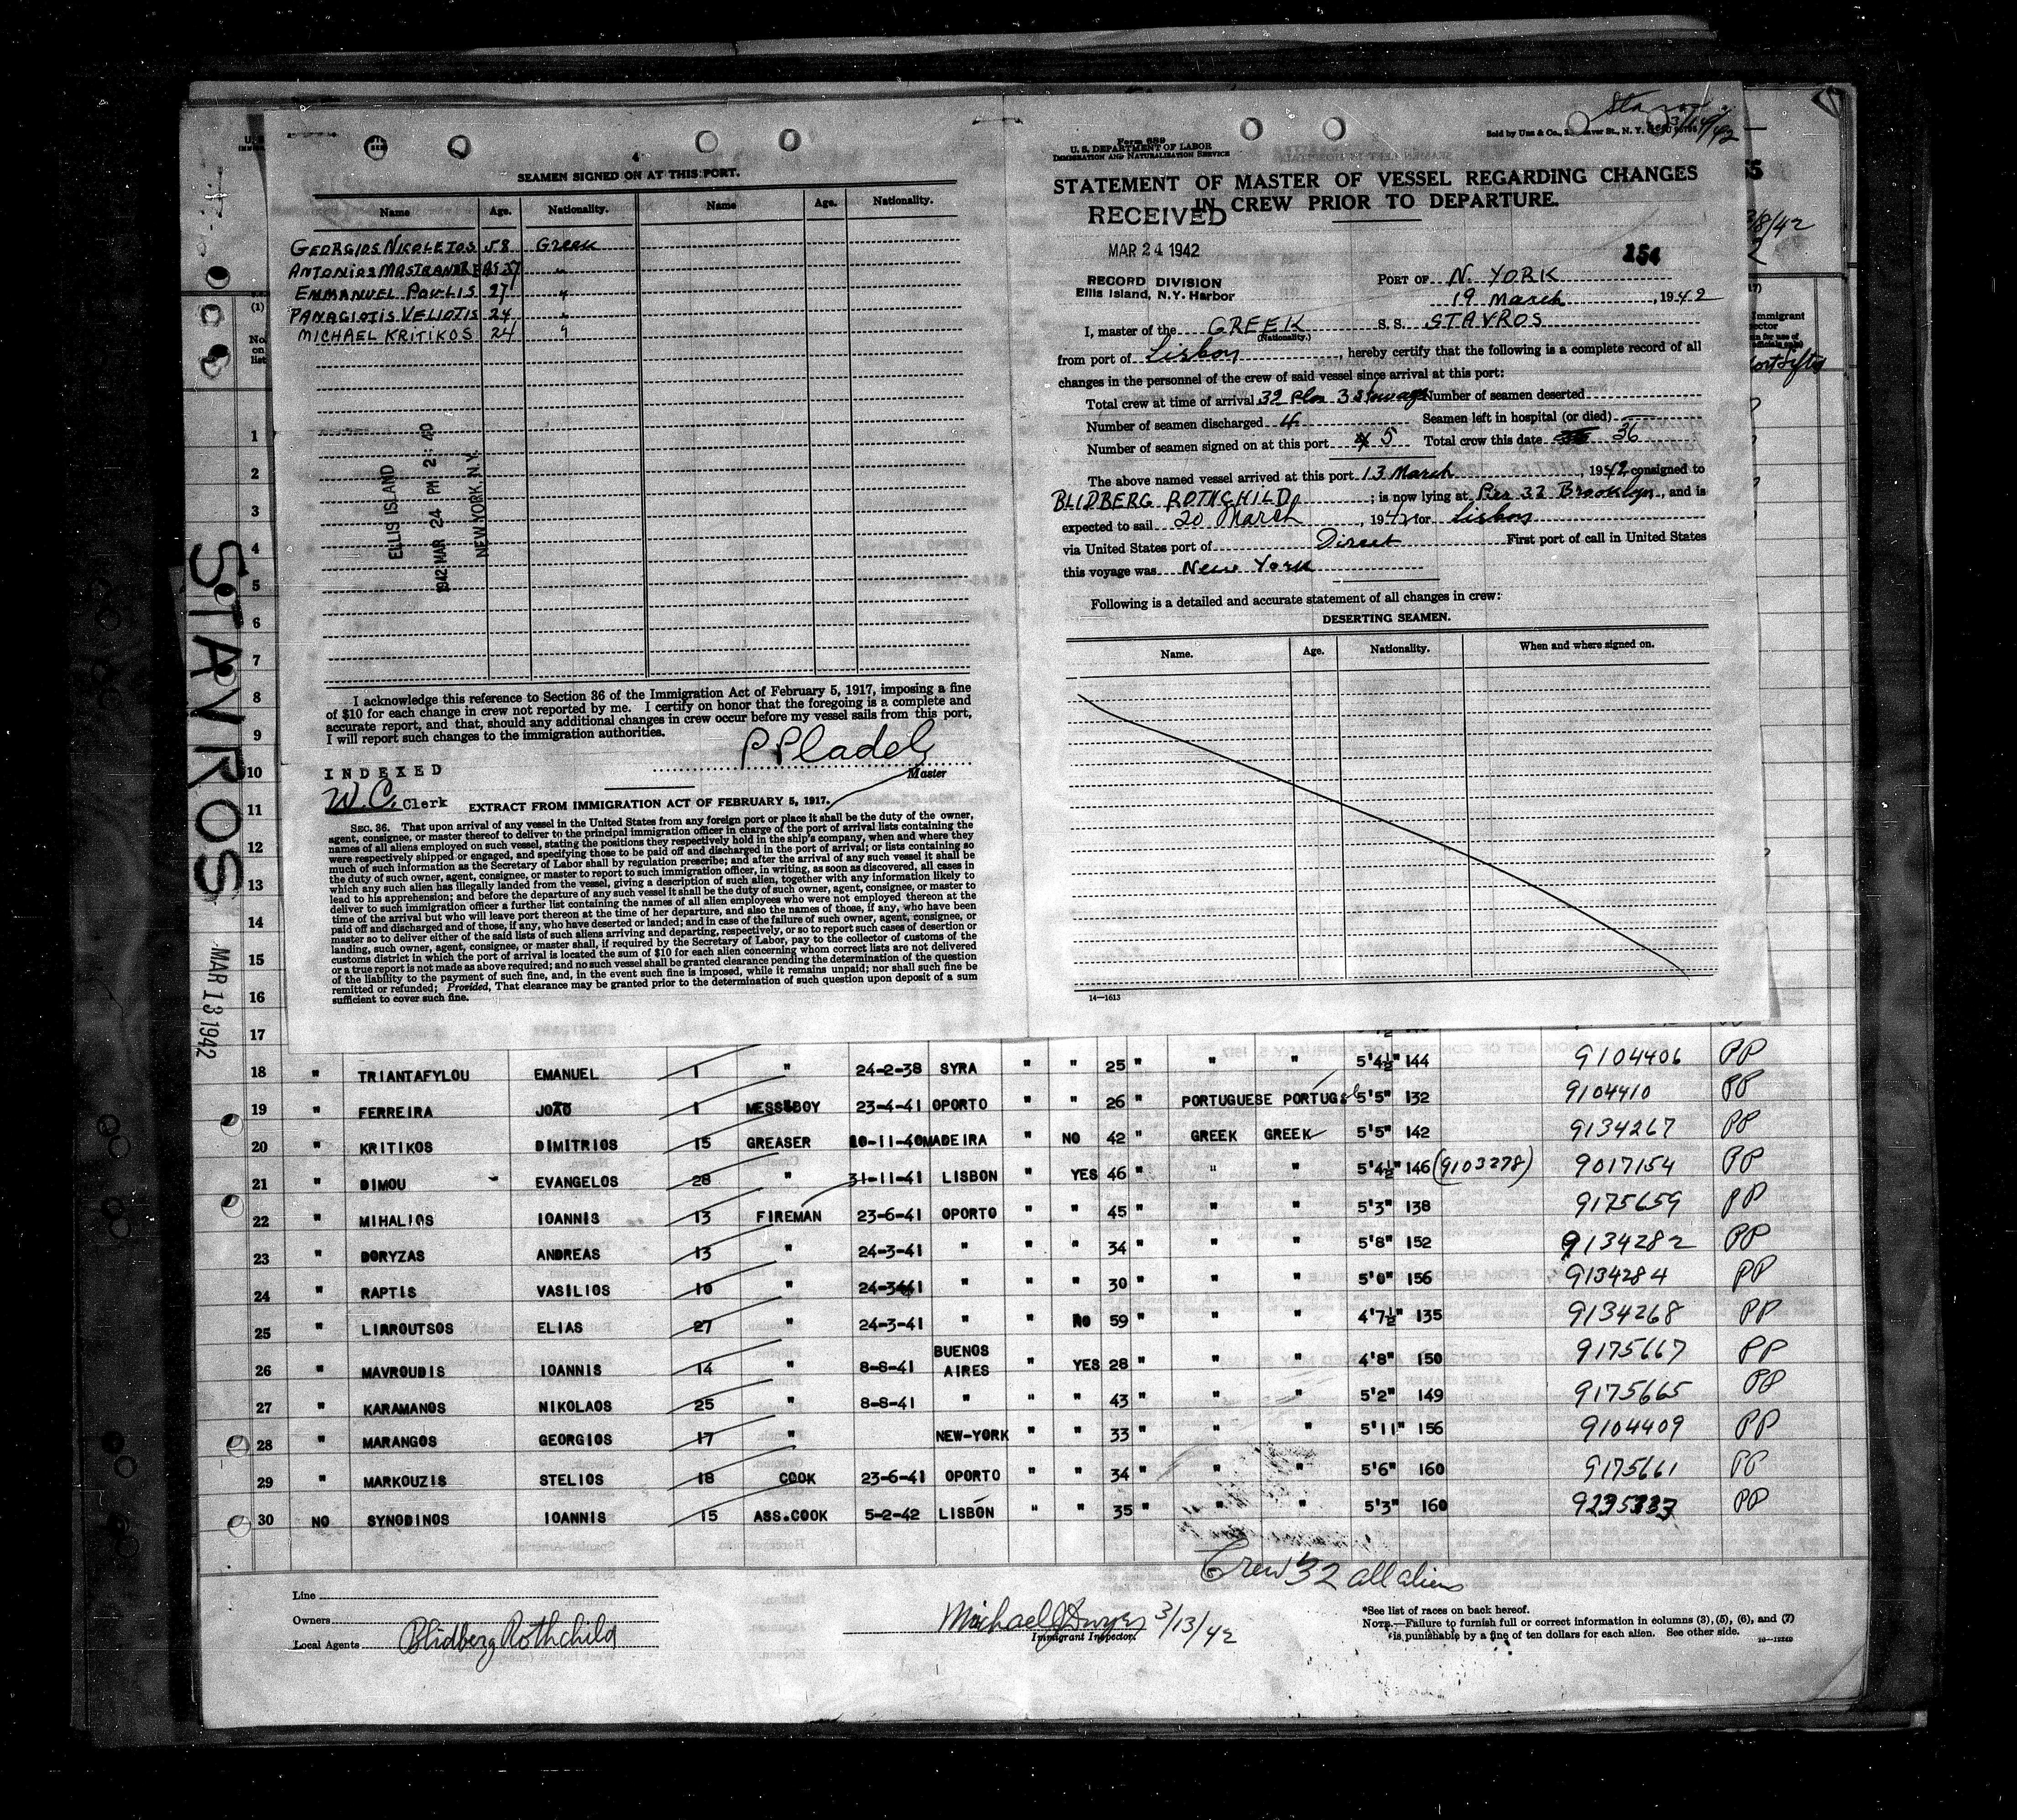 4
SEAMEN SIGNED ON AT THIS PORT.
Name Age. Nationality. Name Age. Nationality.
GEORGIOS NICOLETOS 58 Greek
ANTONIOS 37 "
EMMANUEL POULIS 27 "
PANAGIOTIS VELIOTIS 24 "
MICHAEL KRITIKOS 24 "
ELLIS ISLAND
1942 MAR 24 PM 2:40
NEW YORK, N.Y.
I acknowledge this reference to Section 36 of the Immigration Act of February 5, 1917, imposing a fine
of $10 for each change in crew not reported by me. I certify on honor that the foregoing is a complete and
accurate report, and that, should any additional changes in crew occur before my vessel sails from this port,
I will report such changes to the immigration authorities.
Master
INDEXED
W.C. Clerk
EXTRACT FROM IMMIGRATION ACT OF FEBRUARY 5, 1917.
SEC. 36. That upon arrival of any vessel in the United States from any foreign port or place it shall be the duty of the owner,
agent, consignee, or master thereof to deliver to the principal immigration officer in charge of the port of arrival lists containing the
names of all aliens employed on such vessel, stating the positions they respectively hold in the ship's company, when and where they
were respectively shipped or engaged, and specifying those to be paid off and discharged in the port of arrival; or lists containing so
much of such information as the Secretary of Labor shall by regulation prescribe; and after the arrival of any such vessel it shall be
the duty of such owner, agent, consignee, or master to report to such immigration officer, in writing, as soon as discovered, all cases in
which any such alien has illegally landed from the vessel, giving a description of such alien, together with any information likely to
lead to his apprehension; and before the departure of any such vessel it shall be the duty of such owner, agent, consignee, or master to
deliver to such immigration officer a further list containing the names of all alien employees who were not employed thereon at the
time of the arrival but who will leave port thereon at the time of her departure, and also the names of those, if any, who have been
paid off and discharged and of those, if any, who have deserted or landed; and in case of the failure of such owner, agent, consignee, or
master so to deliver either of the said lists of such aliens arriving and departing, respectively, or so to report such cases of desertion or
landing, such owner, agent, consignee, or master shall, if required by the Secretary of Labor, pay to the collector of customs of the
customs district in which the port of arrival is located the sum of $10 for each alien concerning whom correct lists are not delivered
or a true report is not made as above required; and no such vessel shall be granted clearance pending the determination of the question
of the liability to the payment of such fine, and, in the event such fine is imposed, while it remains unpaid; nor shall such fine be
remitted or refunded; Provided, That clearance may be granted prior to the determination of such question upon deposit of a sum
sufficient to cover such fine.
Form 689
U. S. DEPARTMENT OF LABOR
IMMIGRATION AND NATURALIZATION SERVICE
STATEMENT OF MASTER OF VESSEL REGARDING CHANGES
IN CREW PRIOR TO DEPARTURE.
RECEIVED
MAR 24 1942
RECORD DIVISION
Ellis Island, N.Y. Harbor
154
PORT OF N. YORK
19 March, 1942
I, master of the GREEK S. S. STAVROS
(Nationality.)
from port of Lisbon, hereby certify that the following is a complete record of all
changes in the personnel of the crew of said vessel since arrival at this port:
Total crew at time of arrival 32 Number of seamen deserted
Number of seamen discharged 4 Seamen left in hospital (or died)
Number of seamen signed on at this port 5 Total crew this date 36
The above named vessel arrived at this port 13 March, 1942 consigned to
BLIDBERG ROTHCHILD; is now lying at Pier 32 Brooklyn, and is
expected to sail 20 March, 1942 for Lisbon
via United States port of Direct First port of call in United States
this voyage was New York
Following is a detailed and accurate statement of all changes in crew:
DESERTING SEAMEN.
Name. Age. Nationality. When and where signed on.
14—1613
STAVROS
MAR 13 1942
No. on list
1
2
3
4
5
6
7
8
9
10
11
12
13
14
15
16
17
18 " TRIANTAFYLOU EMANUEL 1 " 24-2-38 SYRA " " 25 " " " 5'4½" 144 9104406 PP
19 " FERREIRA JOAO 1 MESSBOY 23-4-41 OPORTO " " 26 " PORTUGUESE PORTUG 5'5" 132 9104410 PP
20 " KRITIKOS DIMITRIOS 15 GREASER 10-11-40 MADEIRA " NO 42 " GREEK GREEK 5'5" 142 9134267 PP
21 " DIMOU EVANGELOS 28 " 31-11-41 LISBON " YES 46 " " " 5'4½" 146 (9103278) 9017154 PP
22 " MIHALIOS IOANNIS 13 FIREMAN 23-6-41 OPORTO " " 45 " " " 5'3" 138 9175659 PP
23 " DORYZAS ANDREAS 13 " 24-3-41 " " " 34 " " " 5'8" 152 9134282 PP
24 " RAPTIS VASILIOS 10 " 24-3-41 " " " 30 " " " 5'0" 156 9134284 PP
25 " LIROUTSOS ELIAS 27 " 24-3-41 " " NO 59 " " " 4'7½" 135 9134268 PP
26 " MAVROUDIS IOANNIS 14 " 8-8-41 BUENOS AIRES " YES 28 " " " 4'8" 150 9175667 PP
27 " KARAMANOS NIKOLAOS 25 " 8-8-41 " " " 43 " " " 5'2" 149 9175665 PP
28 " MARANGOS GEORGIOS 17 " NEW-YORK " " 33 " " " 5'11" 156 9104409 PP
29 " MARKOUZIS STELIOS 18 COOK 23-6-41 OPORTO " " 34 " " " 5'6" 160 9175661 PP
30 NO SYNODINOS IOANNIS 15 ASS.COOK 5-2-42 LISBON " " 35 " " " 5'3" 160 PP
Crew 32 all aliens
Line
Owners
Local Agents Blidberg Rothchild
Michael J Dwyer 3/13/42
Immigrant Inspector.
*See list of races on back hereof.
NOTE.—Failure to furnish full or correct information in columns (3), (5), (6), and (7)
is punishable by a fine of ten dollars for each alien. See other side.